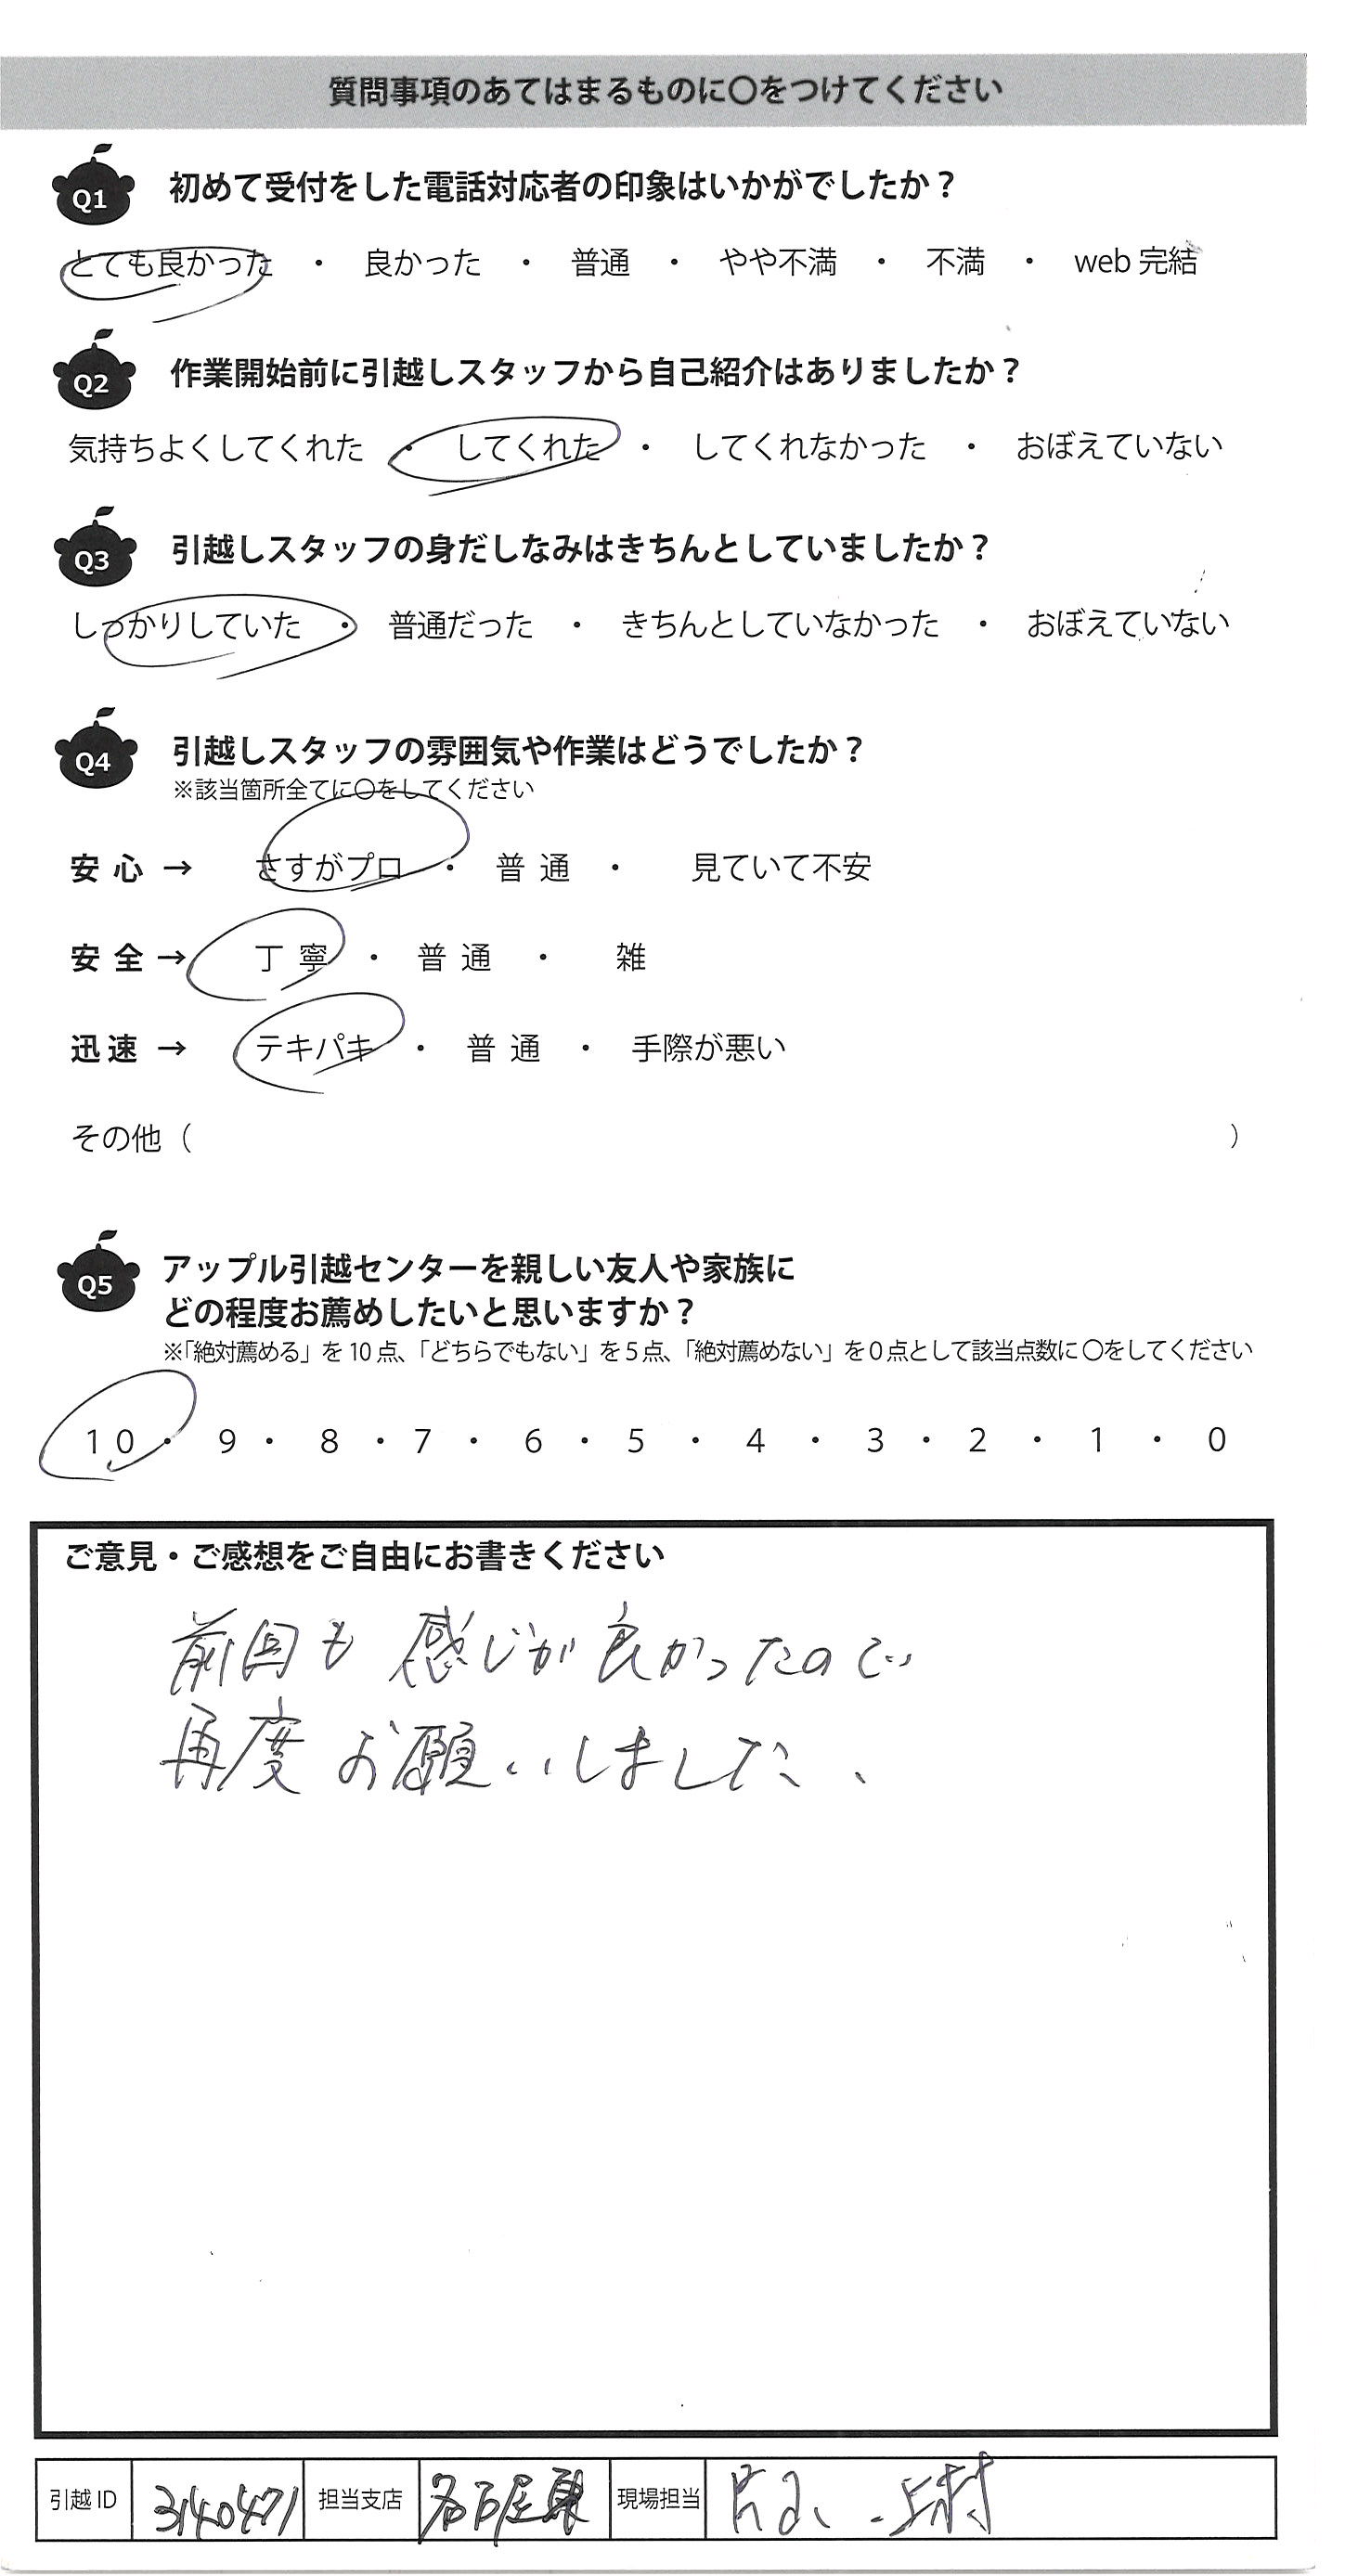 質問事項のあてはまるものに〇をつけてください
Q1 初めて受付をした電話対応者の印象はいかがでしたか？
とても良かった ・ 良かった ・ 普通 ・ やや不満 ・ 不満 ・ web 完結
Q2 作業開始前に引越しスタッフから自己紹介はありましたか？
気持ちよくしてくれた ・ してくれた ・ してくれなかった ・ おぼえていない
Q3 引越しスタッフの身だしなみはきちんとしていましたか？
しっかりしていた ・ 普通だった ・ きちんとしていなかった ・ おぼえていない
Q4 引越しスタッフの雰囲気や作業はどうでしたか？
※該当箇所全てに〇をしてください
安 心 → さすがプロ ・ 普 通 ・ 見ていて不安
安 全 → 丁 寧 ・ 普 通 ・ 雑
迅 速 → テキパキ ・ 普 通 ・ 手際が悪い
その他（ ）
Q5 アップル引越センターを親しい友人や家族に
どの程度お薦めしたいと思いますか？
※「絶対薦める」を 10 点、「どちらでもない」を 5 点、「絶対薦めない」を 0 点として該当点数に 〇をしてください
10 ・ 9 ・ 8 ・ 7 ・ 6 ・ 5 ・ 4 ・ 3 ・ 2 ・ 1 ・ 0
ご意見・ご感想をご自由にお書きください
前回も 感じが良かったので
再度 お願いしました、
引越 ID 3140471 担当支店 名古屋東 現場担当 上村